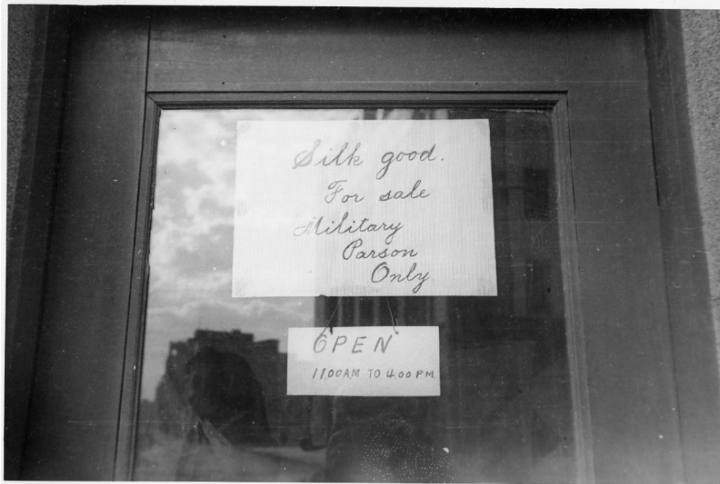 Silk good.
For sale
Military
Parson
Only
OPEN
11.00 AM TO 4.00 P.M.